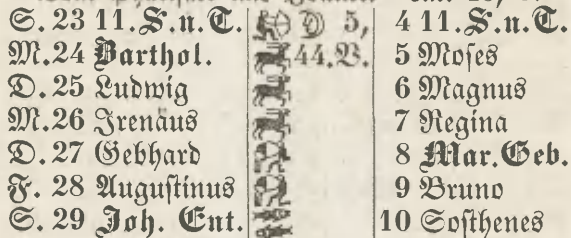 S. 23 11. S. n. T. 5, 4 11. S. n. T.
M. 24 Barthol. 44. V. 5 Moſes
D. 25 Ludwig 6 Magnus
M. 26 Irenäus 7 Regina
D. 27 Gebhard 8 Mar. Geb.
F. 28 Auguſtinus 9 Bruno
S. 29 Joh. Ent. 10 Soſthenes